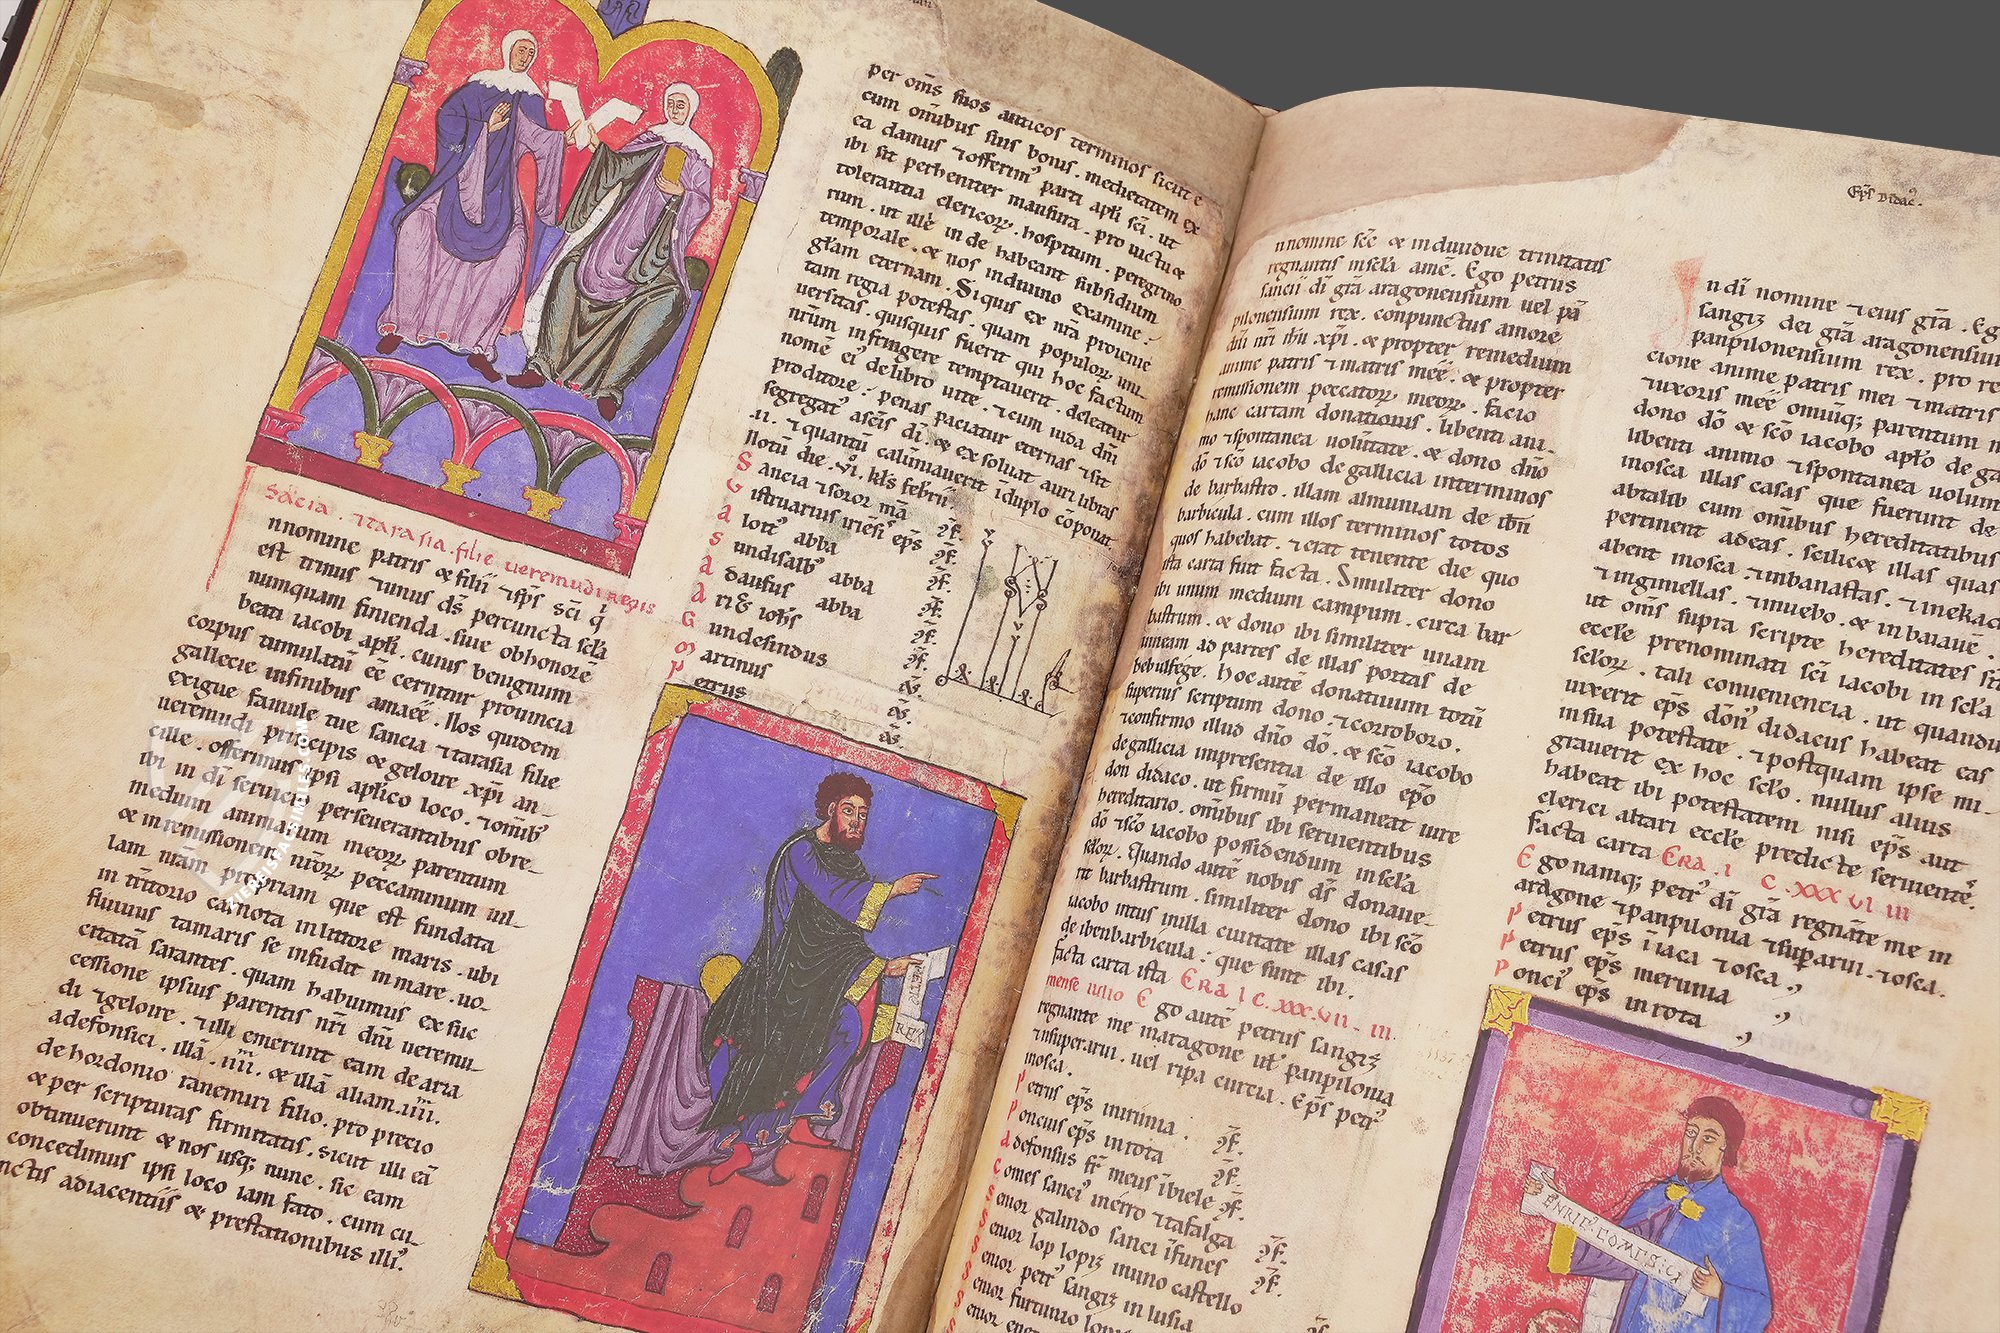 sãcia . & tarasia . filie ueremudi regis
n nomine patris & filii & sp̄s sc̄i q̄
est trinus & unus d̄s per cuncta sc̄la
numquam finienda . siue ob honorē
beati iacobi apl̄i . cuius benignum
corpus tumulatū eē cernitur prouincia
gallecie in finibus amaeē . Nos quidem
exigue famule tue sancia & tarasia filie
ueremudi principis & geloire xp̄i an
cille . offerimus ipsi aplico loco . & om̄ib;
ibi in dī seruicio perseuerantibus obre
medium animarum meoꝝ parentum
& in remissionem nr̄oꝝ peccaminum uil
lam nr̄am propriam que est fundata
in t̄ritorio carnota in littore maris . ubi
fluuius tamaris se infudit in mare . uo
citatā sarantes . quam habuimus ex suc
cessione ipsius parentis nr̄i dn̄i ueremu
di & geloire . & illi emerunt eam de aria
adefonsici . illā . iiii . & illā aliam . iiii .
de hordonio ranemiri filio . pro precio
& per scripturas firmitatis . sicut illi eā
obtinuerunt & nos usq; nunc . sic eam
concedimus ipsi loco iam fato . cum cu
nctis adiacentiis & prestationibus illi'.
per om̄s suos anticos terminos sicut e
cum om̄ibus suis bonis . medietatem ex
ea damus & offerim' parti apl̄i sc̄i . ut
ibi sit perhenniter mansura . pro uictu &
tolerantia clericoꝝ . hospitum . peregrino
rum . ut ille inde habeant subsidium
temporale . & nos in diuino examine
gl̄am eternam . Siquis ex nr̄a progenie
tam regia potestas . quam populoꝝ uni
uersitas . quisquis fuerit qui hoc factum
nr̄um infringere temptauerit . deleatur
nomē ei' de libro uite . & cum iuda dn̄i
proditore : penas paciatur eternas & sit
segregat' a sc̄is dī . & exsoluat auri libras
.ii. & quantū calūniauerit ī duplo cōponat.
Notū die . vi . kl̄s febr̄ii
Sancia & soror mā cf.
Gistruarius iriēsis ep̄s cf.
alot' abba cf.
sundisalb' abba cf.
adaufus abba cf.
ari& ioh̄s cf.
Gundesindus
martinus ts.
petrus ts.
REX
Ep̄s Didac'.
n nomine sc̄e & indiuidue trinitatis
regnantis in sc̄la amē . Ego petrus
sancii dī gr̄a aragonensium uel pā
pilonensium rex . conpunctus amore
dn̄i nr̄i ihū xp̄i . & propter remedium
anime patris & matris meē . & propter
remissionem peccatoꝝ meoꝝ . facio
hanc cartam donationis . libenti ani
mo & spontanea uolūtate . & dono dn̄o
dō & sc̄o iacobo de gallicia in terminos
de barbastro . illam almuniam de ibn̄
barbicula . cum illos terminos totos
quos habebat . & erat tenente die quo
ista carta fuit facta . Similiter dono
ibi unum medium campum . circa bar
bastrum . & dono ibi similiter unam
uineam ad partes de illas portas de
bebulfege . hoc autē donatiuum totū
superius scriptum dono & corroboro .
& confirmo illud dn̄o dō . & sc̄o iacobo
de gallicia in presentia de illo ep̄o
don didaco . ut firmū permaneat iure
hereditario . omībus ibi seruientibus
dō & sc̄o iacobo possidendum in sc̄la
sc̄loꝝ . Quando autē nobis d̄s donaue
rit barbastrum . similiter dono ibi sc̄o
iacobo intus in illa ciuitate illas casas
de iben barbicula : que sunt ibi .
facta carta ista ERA I C . XXX . VII . III .
mense iulio Ego autē petrus sangiz
regnante me in aragone ul' panpilonia
& in superarui . uel ripa curcia . Ep̄s petr'
in osca .
petrus ep̄s in irunia . cf.
poncius ep̄s in rota cf.
adefonsus fr̄ meus ī biele cf.
Comes sanci' in erro & tafalga cf.
Senior galindo sanci ī funes cf.
Senior lop lopiz in uno castello
Senior petr' sangiz in lusia
Senior furtunio
n dī nomine & eius gr̄a . Eg
sangiz dei gr̄a aragonensium
panpilonensium rex . pro re
cione anime patris mei & matris
& uxoris meē omniūq; parentum m
dono dō & sc̄o iacobo apl̄o de ga
libenti animo & spontanea uolun
in osca illas casas que fuerunt de
abtalib cum om̄ibus hereditatibus
pertinent ad eas . scilic& illas quas
abent in osca . & in banastas . & in ekad
& in ginnellas . & in uebo . & in baiauē .
ut om̄s supra scripte hereditates sī
eccl̄e prenominati sc̄i iacobi in sc̄la
sc̄loꝝ . tali conueniencia . ut quandiu
uixerit ep̄s dōn' didacus habeat eas
in sua potestate . & postquam ipse mi
grauerit ex hoc sc̄lo . nullus alius
habeat ibi potestatem nisi ep̄s aut
clerici altari eccl̄e predicte seruientes.
facta carta ERA . I C . XXX VI III
Ego namq; petr' dī gr̄a regnāte me in
aragone & panpilonia & suparui . & osca .
petrus ep̄s ī iaca & osca
petrus ep̄s in irunia
ponci' ep̄s in rota
ENRIC' COMES
ZIEREISFACSIMILES.COM